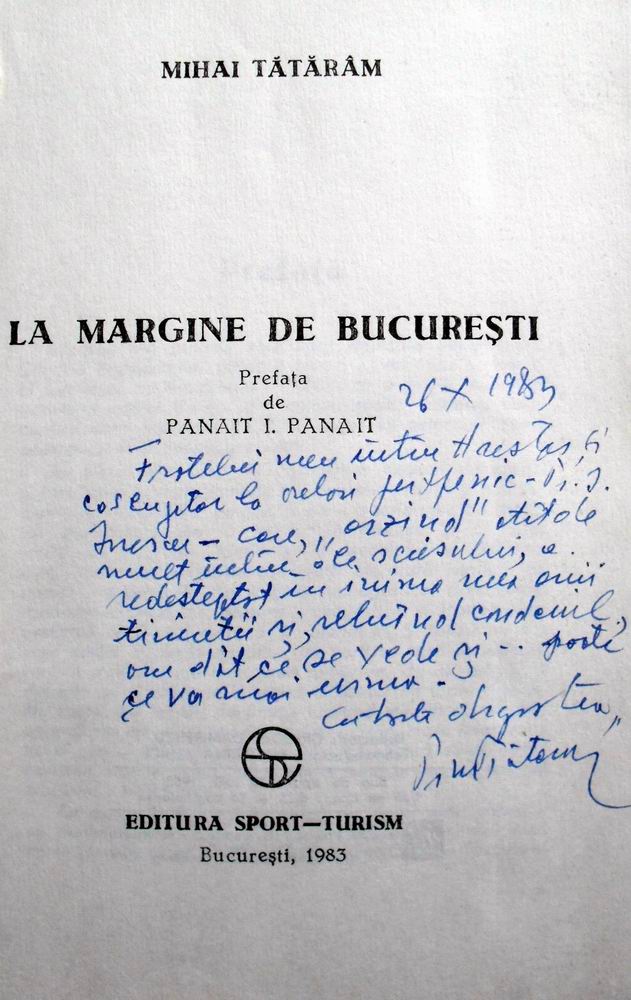 MIHAI TĂTĂRÂM
LA MARGINE DE BUCUREȘTI
Prefața
de
PANAIT I. PANAIT
26 X 1983
Fratelui meu întru Hristos, și
la
care, "arzînd" atît de
mult întru ale scrisului, a
redeșteptat în inima mea anii
tinereții și, reluînd condeiul,
am dat ce se vede și .. poate
ce va mai urma -
dragostea,
EDITURA SPORT—TURISM
București, 1983